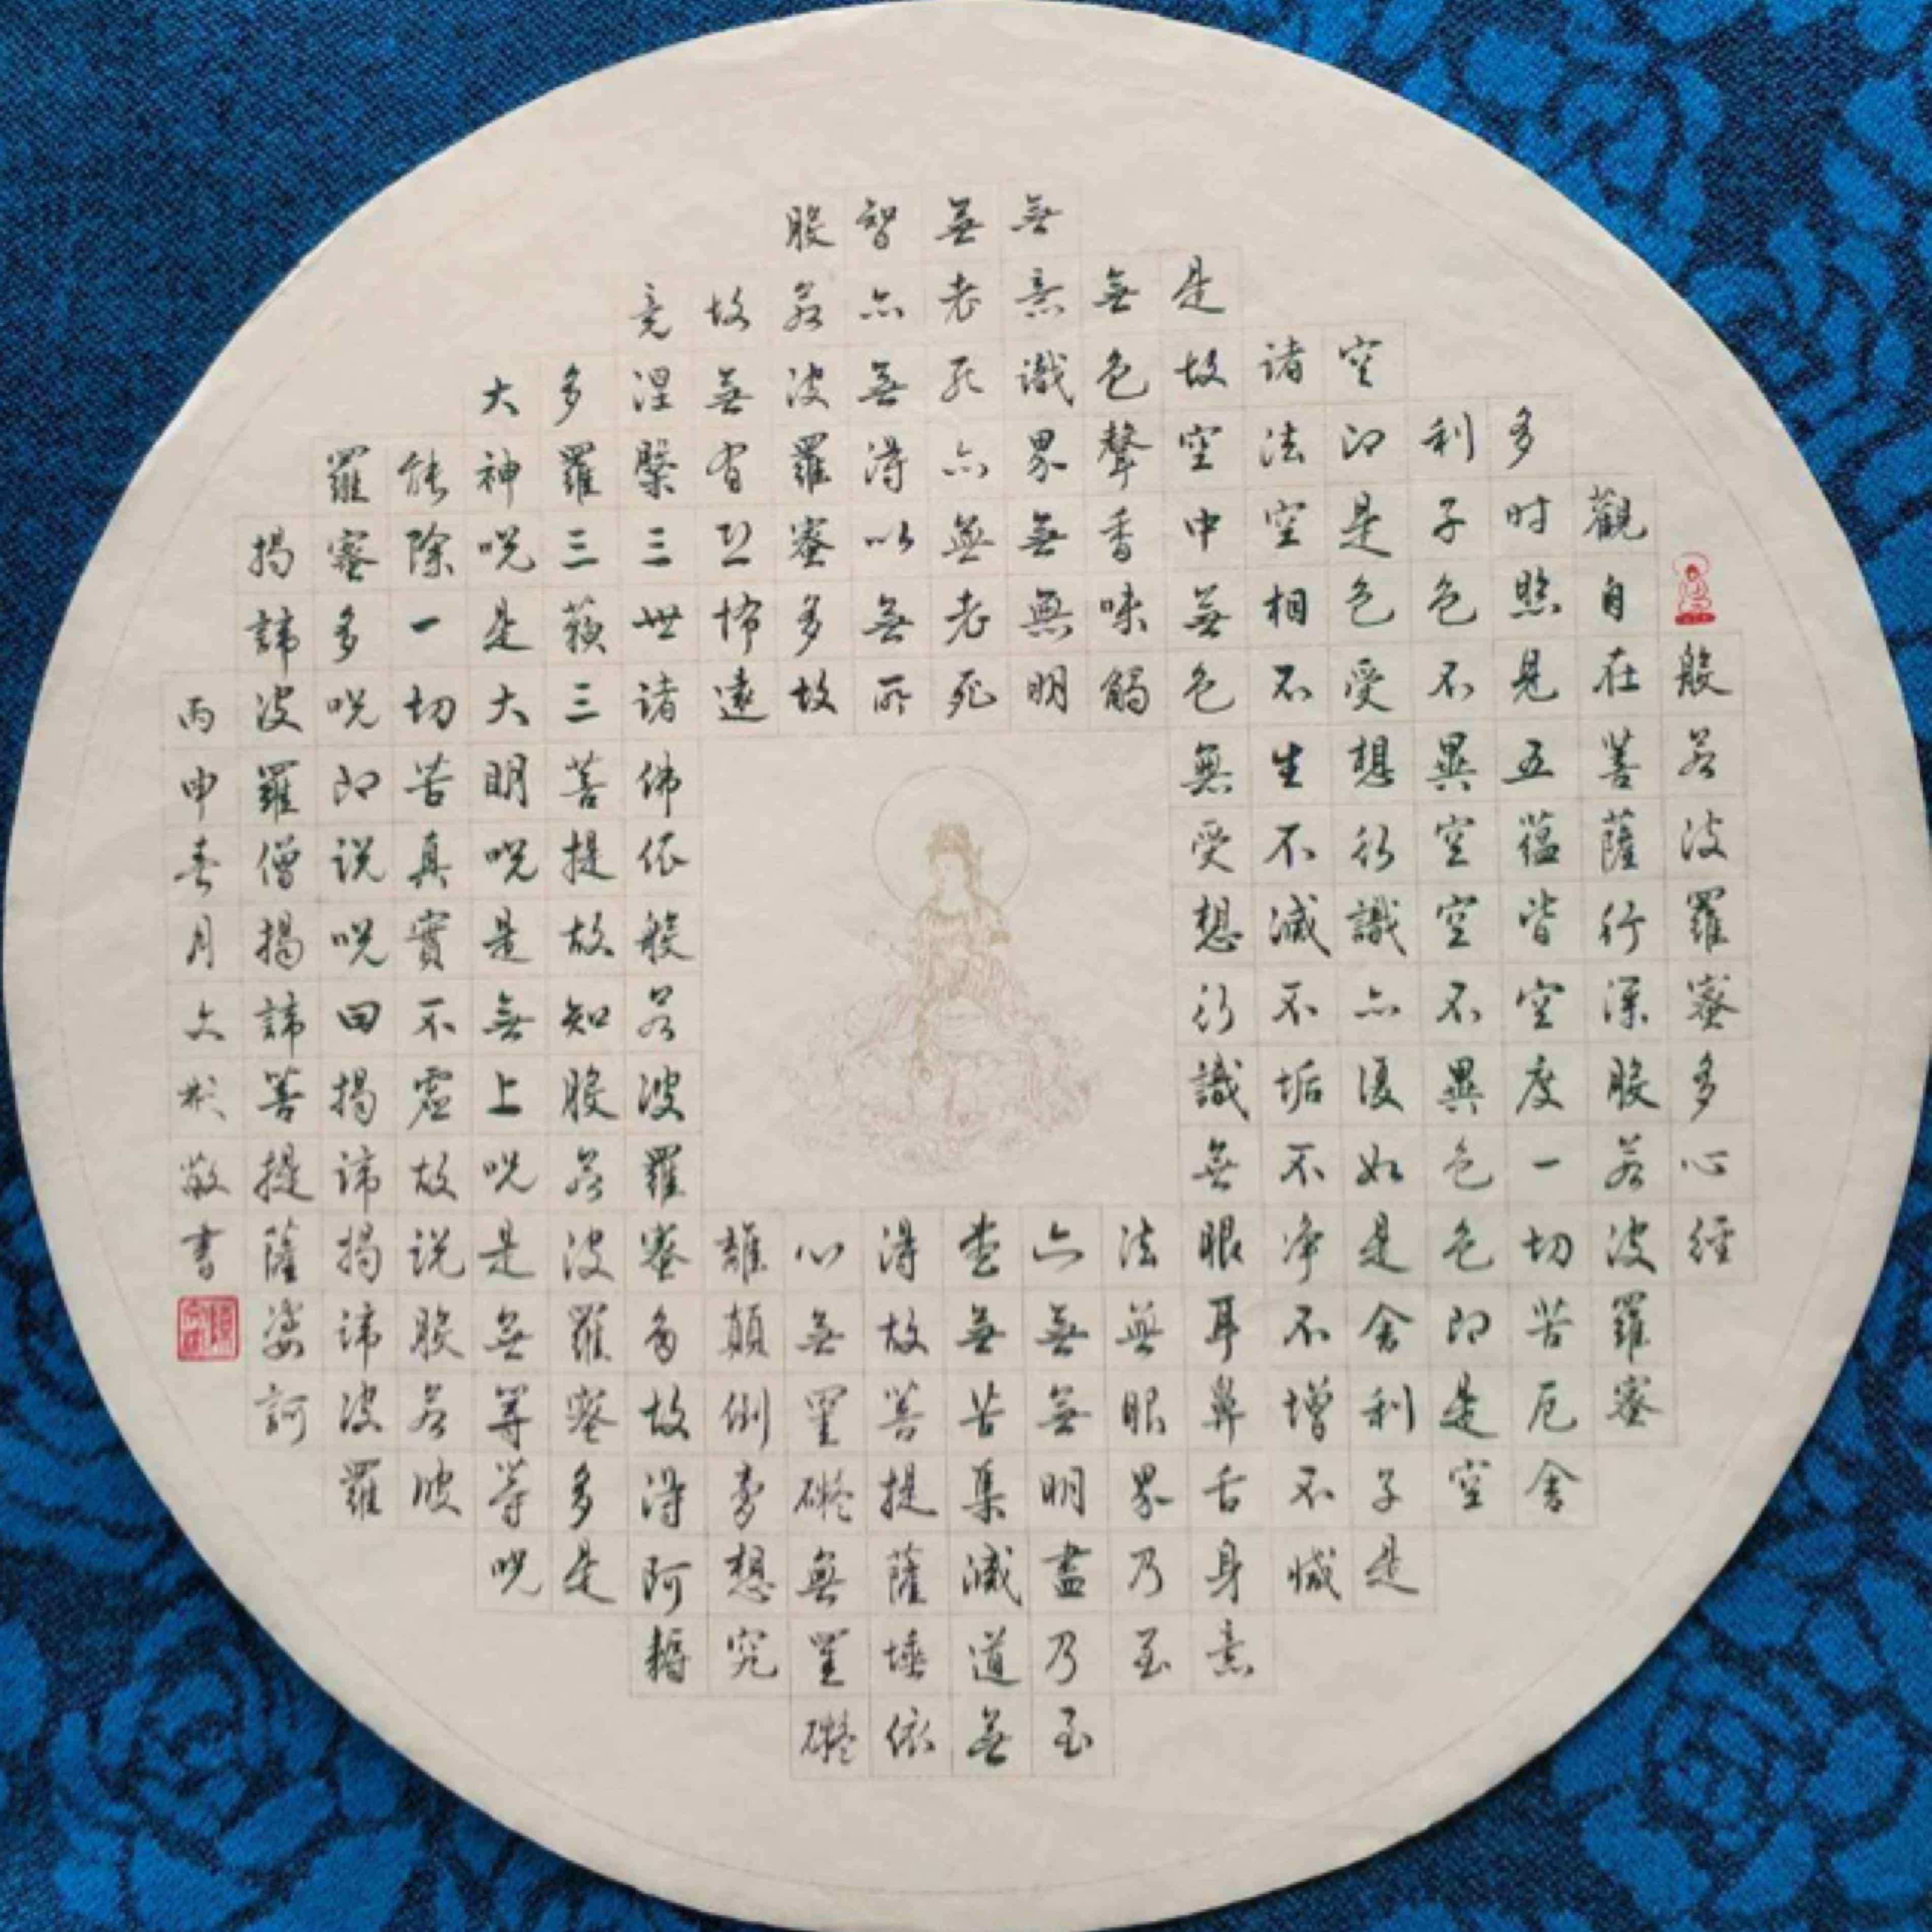 般若波羅蜜多心經
觀自在菩薩行深般若波羅蜜
多时照見五蕴皆空度一切苦厄舍
利子色不異空空不異色色即是空
空即是色受想行識亦復如是舍利子是
诸法空相不生不滅不垢不净不增不減
是故空中無色無受想行識無眼耳鼻舌身意
無色聲香味觸法無眼界乃至
無意識界無無明亦無無明盡乃至
無老死亦無老死盡無苦集滅道無
智亦無得以無所得故菩提薩埵依
般若波羅蜜多故心無罣礙無罣礙
故無有恐怖遠離顛倒夢想究
竟涅槃三世诸佛依般若波羅蜜多故得阿耨
多羅三藐三菩提故知般若波羅蜜多是
大神咒是大明咒是無上咒是無等等咒
能除一切苦真實不虛故说般若波
羅蜜多咒即说咒曰揭諦揭諦波羅
揭諦波羅僧揭諦菩提薩婆訶
丙申春月文敬書